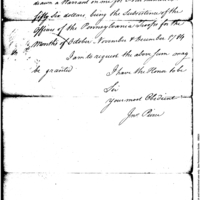 draw a Warrant in me for
fifty Six dollars being the Subsistence of the
Officers of the Pennsylvania Troops for the
Months of October November & December 1784
I am to request the above sum may
be granted
I have the Honor to be
Sir
Your most Obedient
Jno Peirce